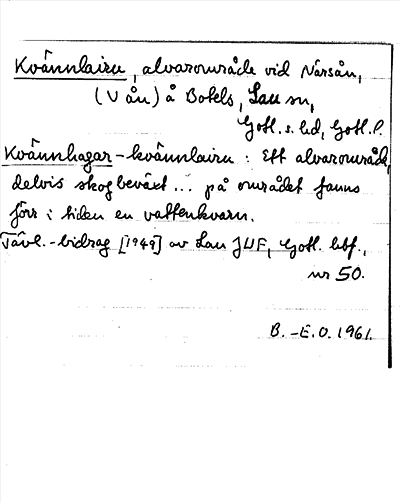 Kvännlairu, alvarområde vid Närsån,
(V ån) å Botels, Lau sn,
Gotl. s. hd, Gotl. l.
Kvännhagar-kvännlairu : Ett alvarområde,
delvis skogbeväxt... på området fanns
förr i tiden en vattenkvarn.
Tävl.-bidrag [1949] av Lau JUF, Gotl. hbf.,
nr 50.
B.-E.O. 1961.